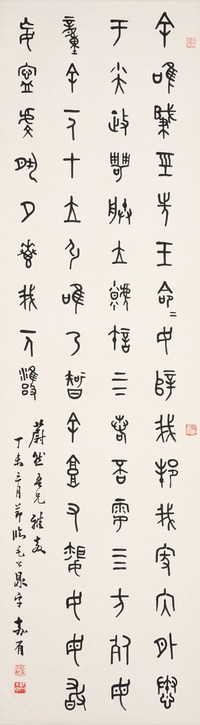 余唯肇巠先王命=女辥我邦我家内外憃
于小大政甹朕立虩許上下若否雩四方死毋
童余一人才立引唯乃智余非庸又昏女毋敢
妄寧虔夙夕惠我一人雝
蔚然吾兄雅教
丁未三月節臨毛公鼎字